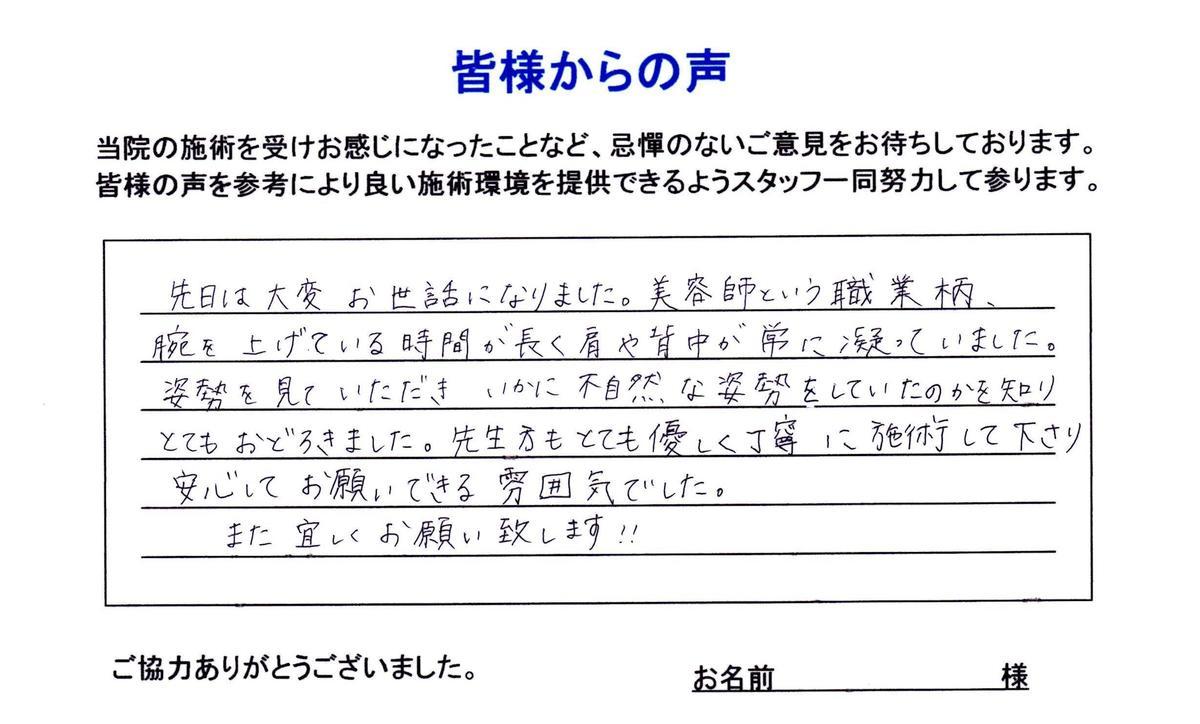 皆様からの声
当院の施術を受けお感じになったことなど、忌憚のないご意見をお待ちしております。
皆様の声を参考により良い施術環境を提供できるようスタッフ一同努力して参ります。
先日は大変 お世話になりました。美容師という職業柄、
腕を 上げている時間が長く肩や背中が常に凝っていました。
姿勢を見ていただき いかに不自然な姿勢をしていたのかを知り
とてもおどろきました。先生方もとても優しく丁寧に施術して下さり
安心してお願いできる雰囲気でした。
また宜しくお願い致します!!
ご協力ありがとうございました。
お名前 様